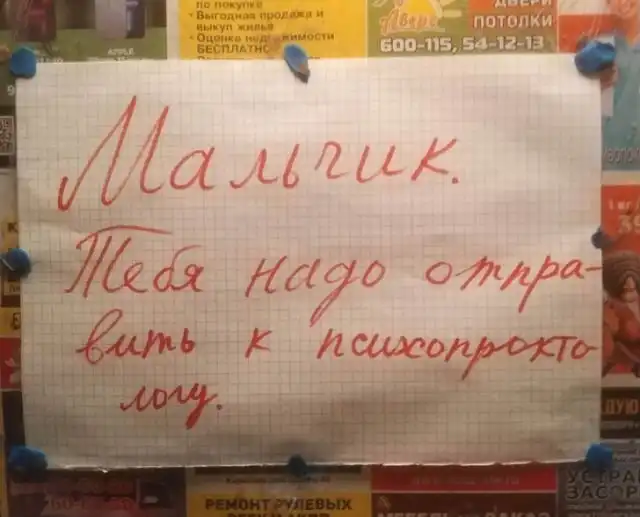 по покупке
• Выгодная продажа и
выкуп жилья
• Оценка недвижимости
БЕСПЛАТНО
APPLE
ДВЕРИ
ПОТОЛКИ
600-115, 54-12-13
Мальчик.
Тебя надо отпра-
вить к психопрокто-
логу.
РЕМОНТ РУЛЕВЫХ
УСТРА
ЗАСОР